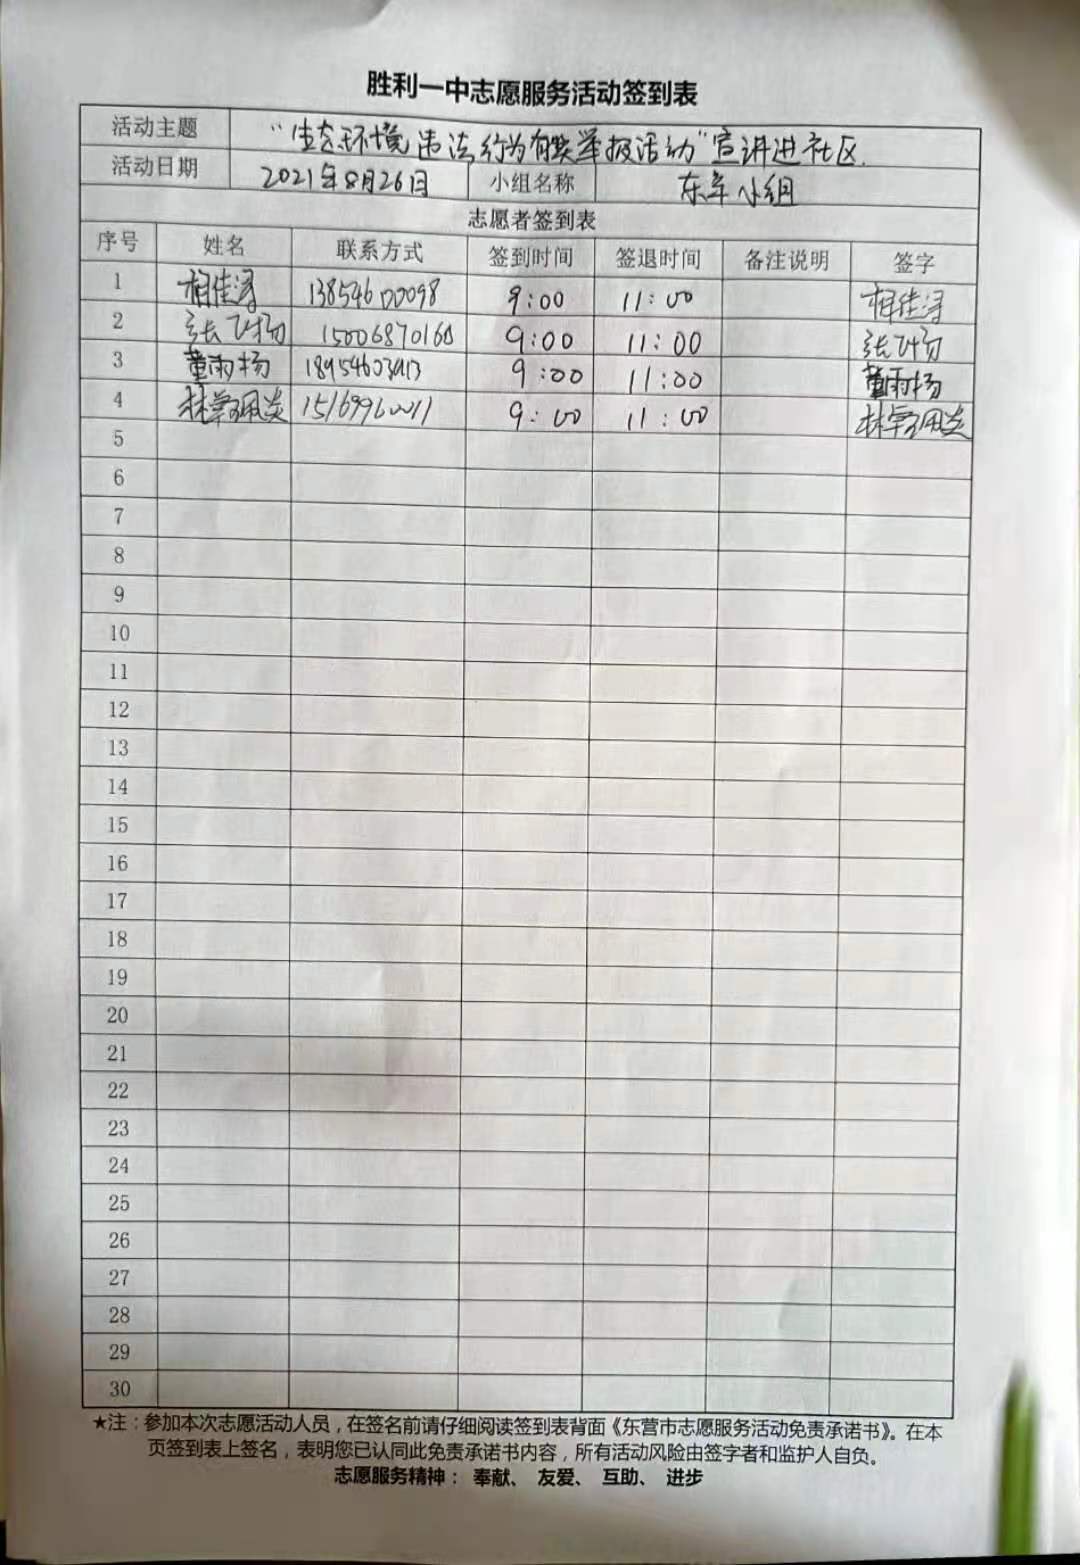 胜利一中志愿服务活动签到表
活动主题 “生态环境违法行为有奖举报活动”宣讲进社区.
活动日期 2021年8月26日 小组名称 东辛小组
志愿者签到表
序号 姓名 联系方式 签到时间 签退时间 备注说明 签字
1 相佳浔 13854600098 9:00 11:00 相佳浔
2 张飞扬 15006870160 9:00 11:00 张飞扬
3 董雨杨 9:00 11:00 董雨杨
4 9:00 11:00
5
6
7
8
9
10
11
12
13
14
15
16
17
18
19
20
21
22
23
24
25
26
27
28
29
30
★注：参加本次志愿活动人员，在签名前请仔细阅读签到表背面《东营市志愿服务活动免责承诺书》。在本
页签到表上签名，表明您已认同此免责承诺书内容，所有活动风险由签字者和监护人自负。
志愿服务精神： 奉献、 友爱、 互助、 进步